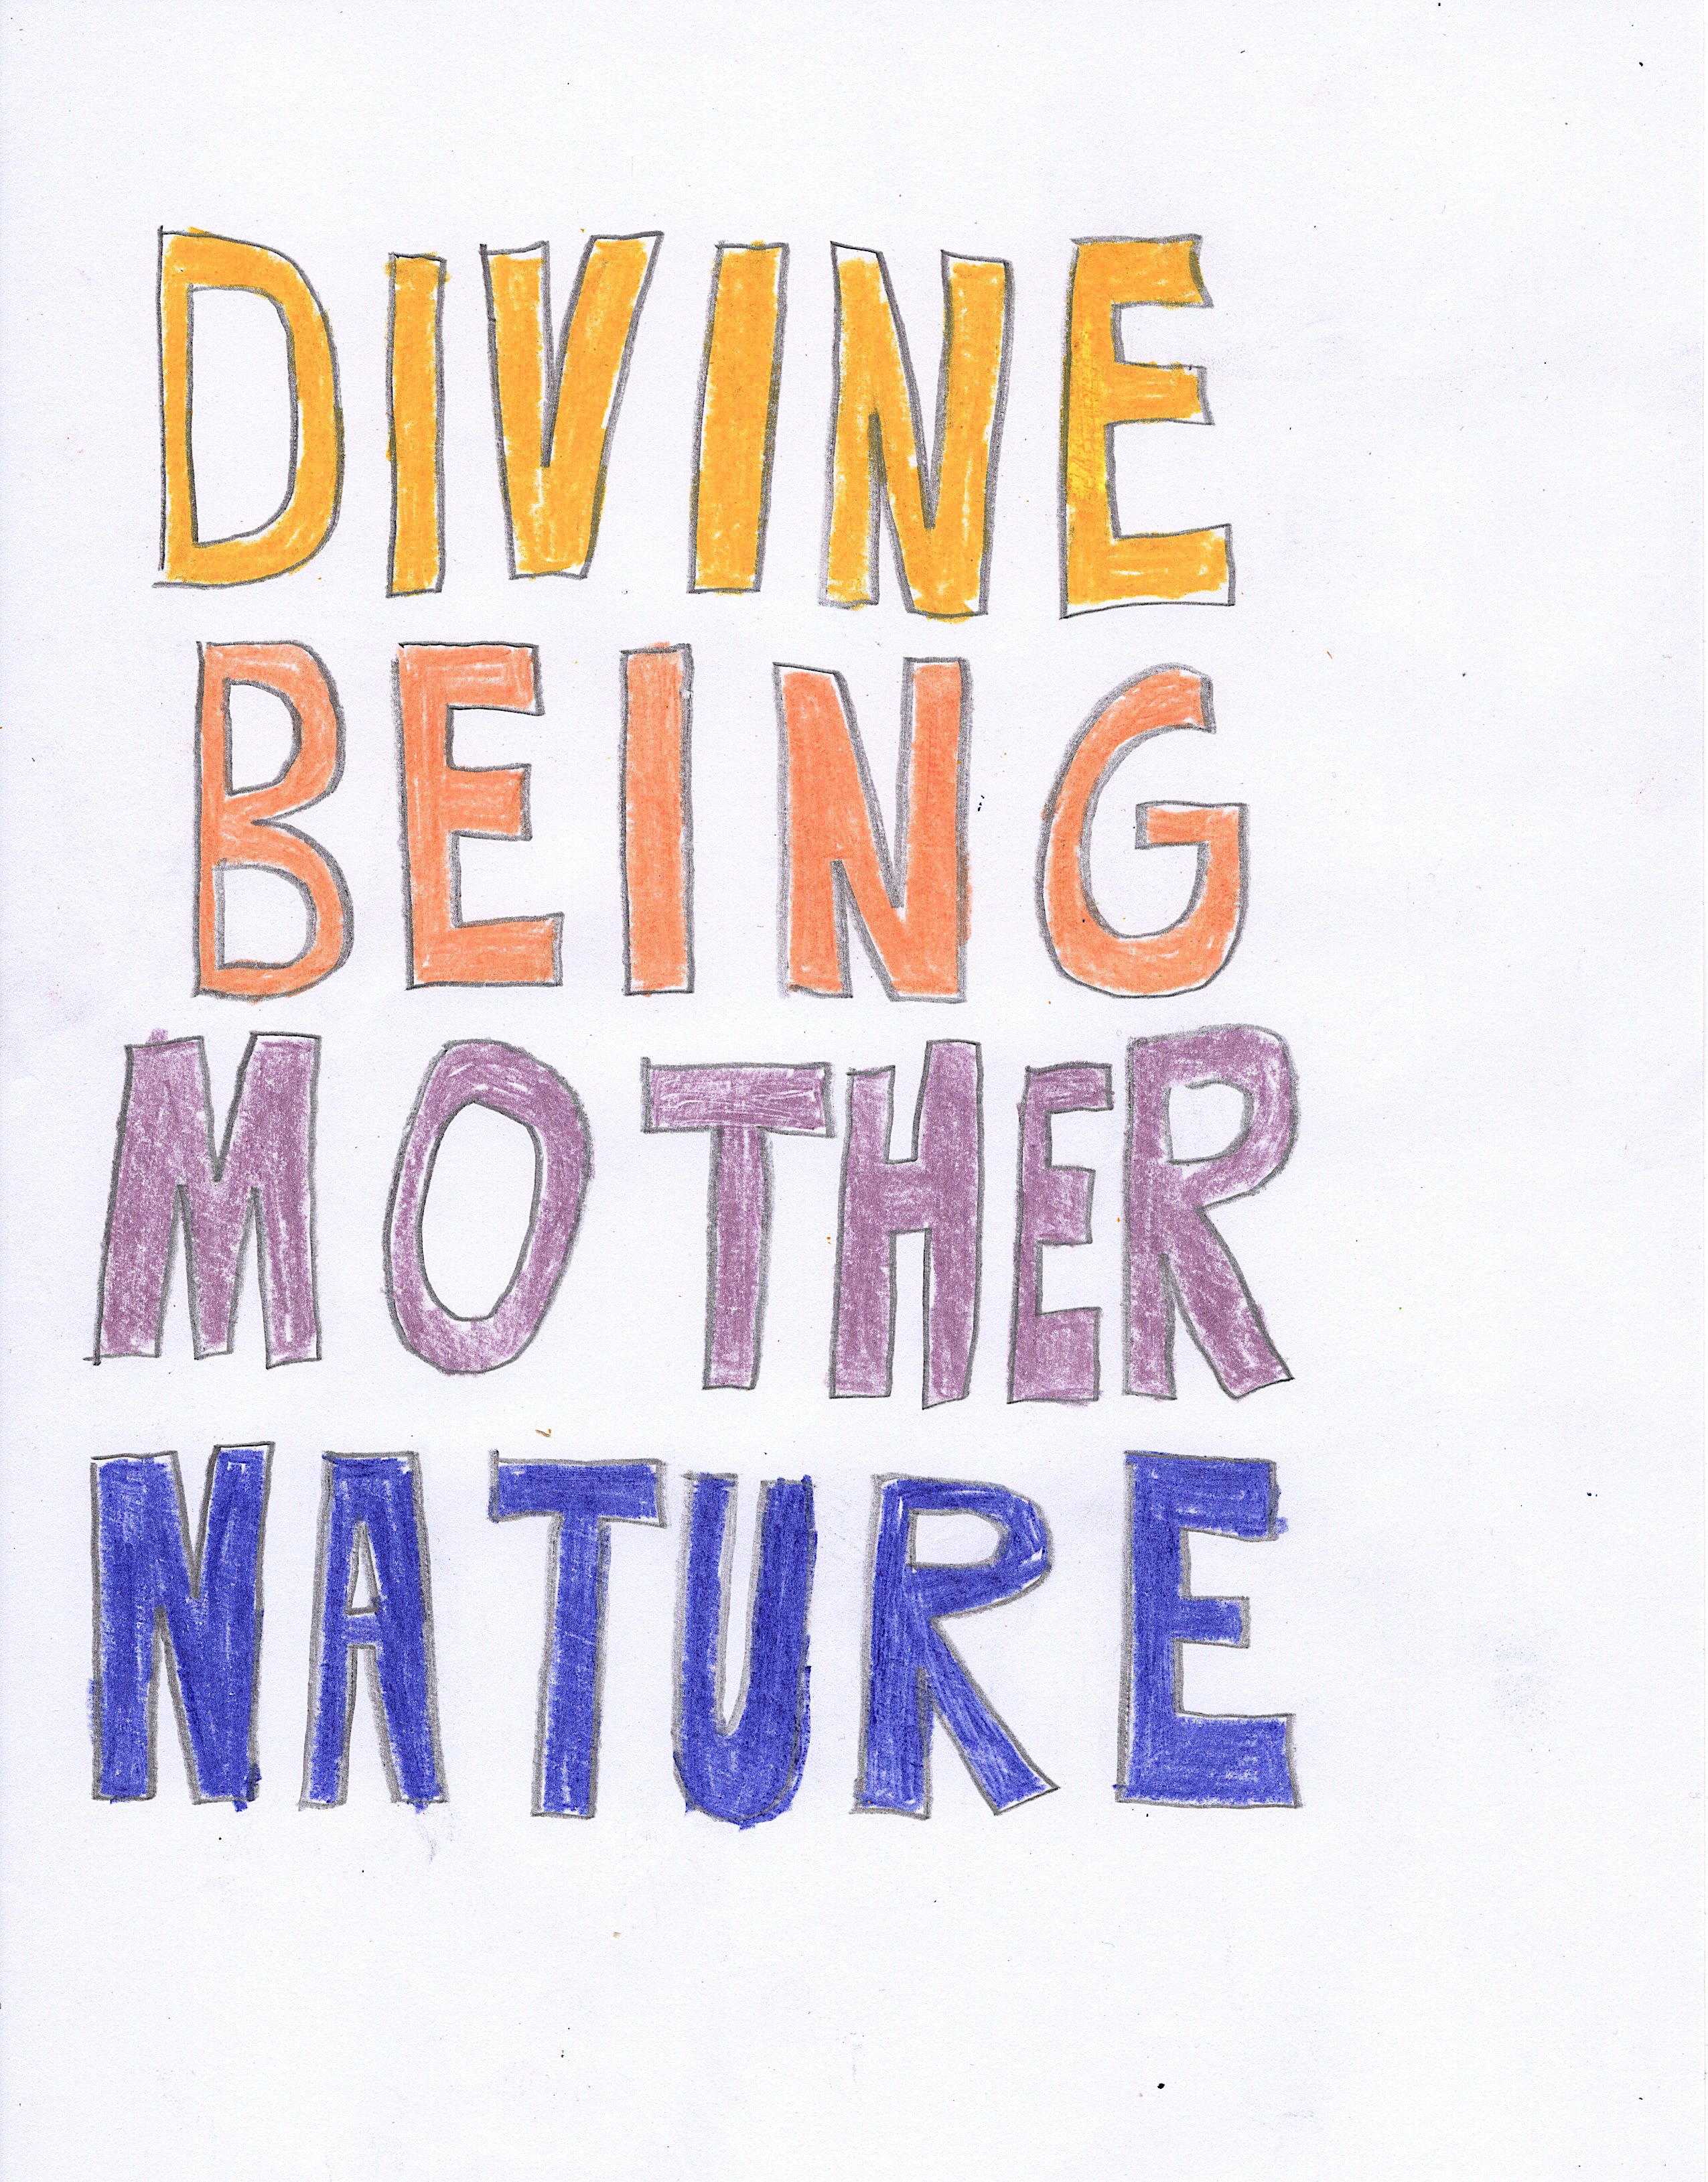 DIVINE
BEING
MOTHER
NATURE